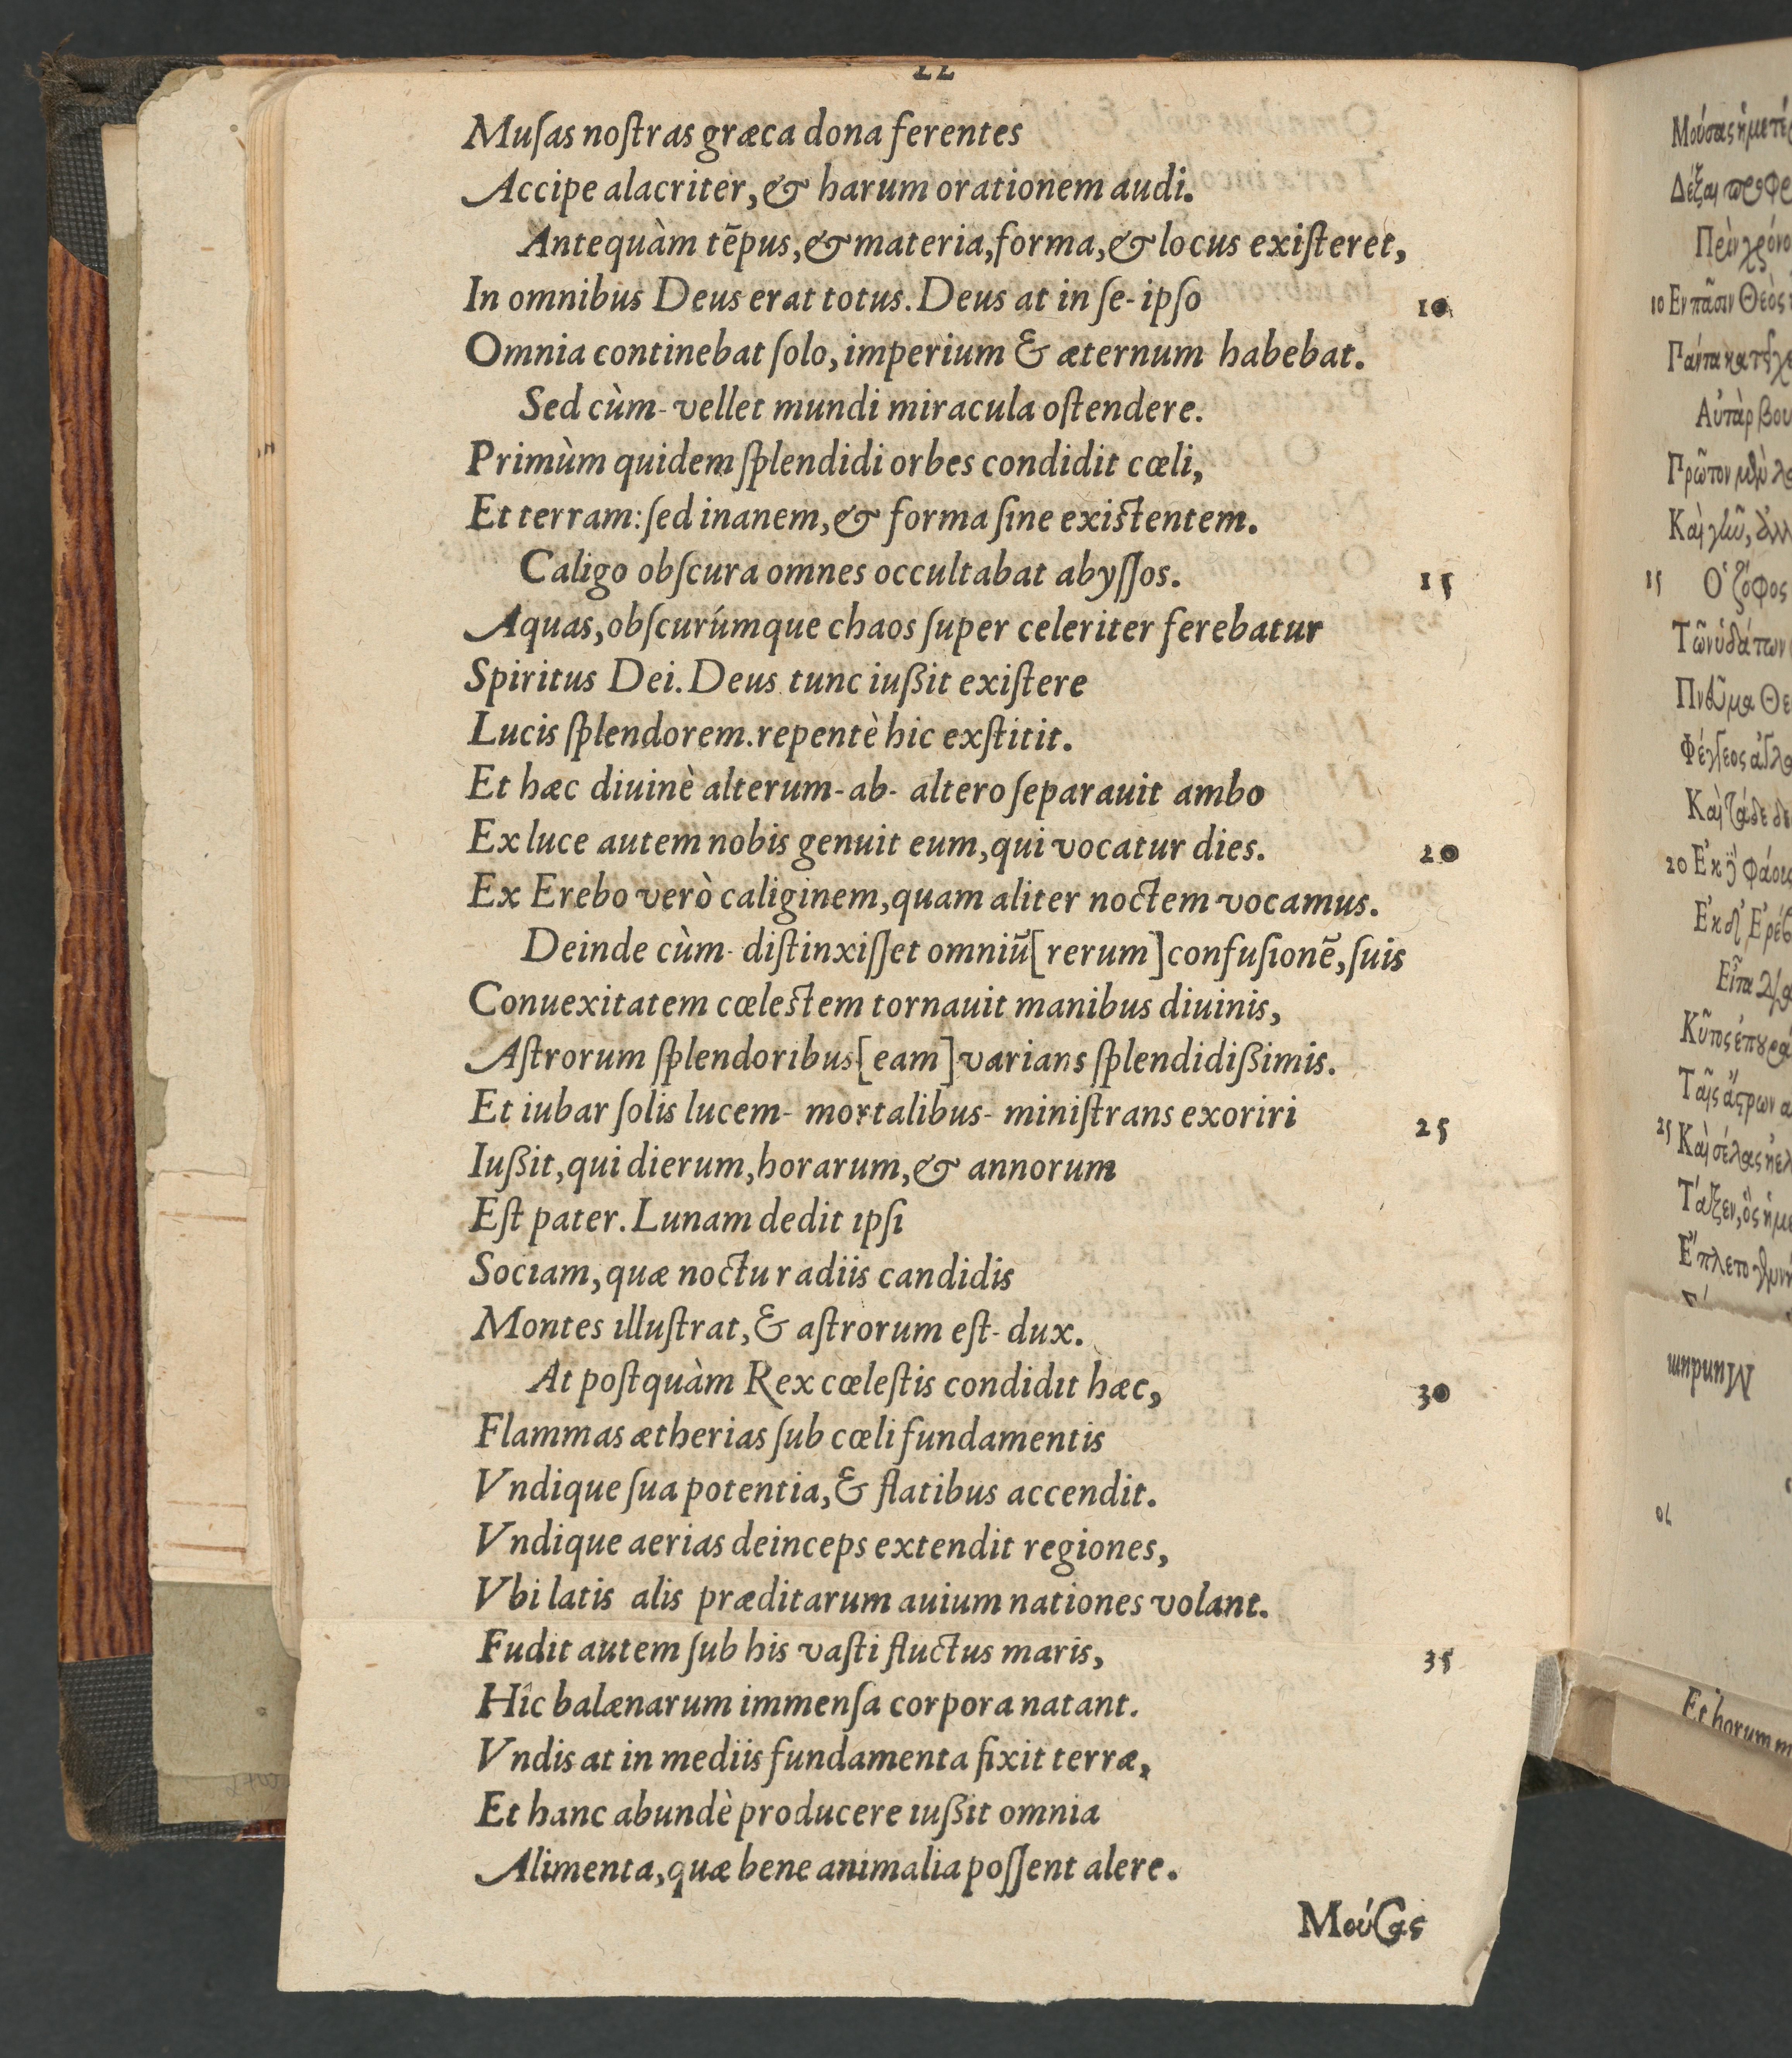 22
Muſas noſtras græca dona ferentes
Accipe alacriter, & harum orationem audi.
Antequàm tēpus, & materia, forma, & locus exiſteret,
In omnibus Deus erat totus. Deus at in ſe-ipſo 10
Omnia continebat ſolo, imperium & æternum habebat.
Sed cùm-vellet mundi miracula oſtendere.
Primùm quidem ſplendidi orbes condidit cœli,
Et terram: ſed inanem, & forma ſine exiſtentem.
Caligo obſcura omnes occultabat abyſſos. 15
Aquas, obſcurúmque chaos ſuper celeriter ferebatur
Spiritus Dei. Deus tunc iußit exiſtere
Lucis ſplendorem. repentè hic exſtitit.
Et hæc diuinè alterum-ab-altero ſeparauit ambo
Ex luce autem nobis genuit eum, qui vocatur dies. 20
Ex Erebo verò caliginem, quam aliter noctem vocamus.
Deinde cùm-diſtinxiſſet omniū [rerum] confuſionē, ſuis
Conuexitatem cœleſtem tornauit manibus diuinis,
Aſtrorum ſplendoribus [eam] varians ſplendidißimis.
Et iubar ſolis lucem-mortalibus-miniſtrans exoriri 25
Iußit, qui dierum, horarum, & annorum
Eſt pater. Lunam dedit ıpſi
Socıam, quæ noctu radiis candidis
Montes ılluſtrat, & aſtrorum eſt-dux.
At poſtquàm Rex cœleſtis condidıt hæc, 30
Flammas ætherias ſub cœli fundamentis
Vndique ſua potentia, & flatibus accendit.
Vndique aerias deinceps extendit regiones,
Vbi latis alis præditarum auium nationes volant.
Fudit autem ſub his vaſti fluctus maris, 35
Hîc balænarum immenſa corpora natant.
Vndis at in mediis fundamenta fixit terræ,
Et hanc abundè producere ıußit omnia
Alimenta, quæ bene animalia poſſent alere.
Μούσας
Μούσας
10 Εν πᾶσιν Θεὸς
15 Ο ζόφος
Τῶν ὑδάτων
20
25
Mundum
70
Et horum